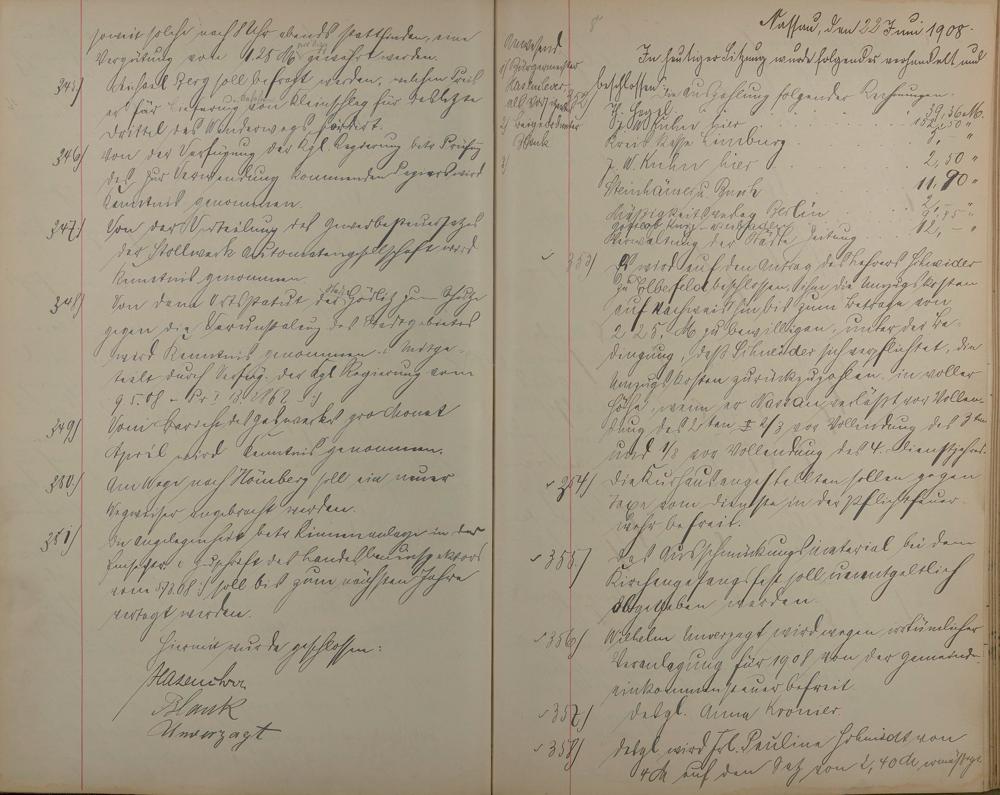 soweit solche nach 8 Uhr abends stattfinden, eine
Vergütung von 1.25 M gewährt werden.
345/ Michael Berg soll befragt werden, welchen Preis
er für Lieferung von Kleinschlag für das letzte
Drittel des Wanderwegs fordert.
346/ Von der Verfügung der Kgl. Regierung betr. Prüfung
des zur Verwendung kommenden Papiers wird
Kenntnis genommen.
347/ Von der Verteilung des Gewerbesteuersatzes
der Stollwerk Automatengesellschaft wird
Kenntnis genommen
348/ Von dem Ortsstatut der Stadt Görlitz zum Schutze
gegen die Verunstaltung des Stadtgebietes
wird Kenntnis genommen. Mitge-
teilt durch Verfüg. der Kgl. Regierung vom
9 5. 08
349/ Vom Bericht des Gaswerks pro Monat
April wird Kenntnis genommen.
350/ Am Wege nach Hömberg soll ein neuer
Wegweiser angebracht werden.
351/ In Angelegenheit betr. Rinnenanlage in der
des Landesbauinspektors
vom soll bis zum nächsten Jahre
vertagt werden.
Hiermit wurde geschlossen:
Hasenclever
Blank
Unverzagt
Nassau, den 22 Juni 1908.
Anwesend
1) Bürgermeister
Hasenclever
als Vorsitzender
2) Beigeordneter
Blank
3)
In heutiger Sitzung wurde folgendes verhandelt und
beschlossen:
352 die Auszahlung folgender Rechnungen.
39,36 M.
J. W. Kuhn hier
Kreis Kasse Limburg
J. W. Kuhn hier 2,50 "
Steinhäuser u. Bank 11,90 "
Mäßigkeitsverlag Berlin
Verwaltung der Städte Zeitung 12, - "
353/ Es wird auf den Antrag des Lehrers Schneider
zu Elberfeld beschlossen, ihm die Umzugskosten
auf Nachweis hin bis zum Betrage von
225, M zu bewilligen, unter der Be-
dingung, daß Schneider sich verpflichtet, die
Umzugskosten zurückzuzahlen in voller
Höhe, wenn er Nassau verläßt vor Vollen-
dung des 2ten, 2/3 vor Vollendung des 3ten
und 1/3 vor Vollendung des 4. Dienstjahres.
354/ Die Kurhausangestellten sollen gegen
Taxe vom Dienste in der Pflichtfeuer-
wehr befreit.
355/ Das Ausschmückungsmaterial bei dem
Kirchengesangsfest soll unentgeltlich
abgegeben werden.
356/ Wilhelm Unverzagt wird wegen irrtümlicher
Veranlagung für 1908 von der Gemeinde-
einkommensteuer befreit.
357/ Desgl. Anna Kromer.
358/ Desgl. wird Frl. Pauline Schmidt von
4 M auf den Satz von 2,40 M ermäßigt